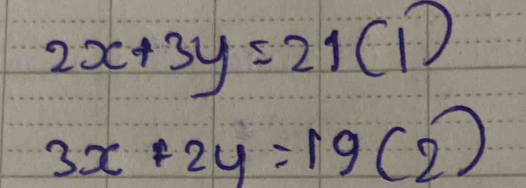 2x+3y=21(1)
3x+2y=19(2)